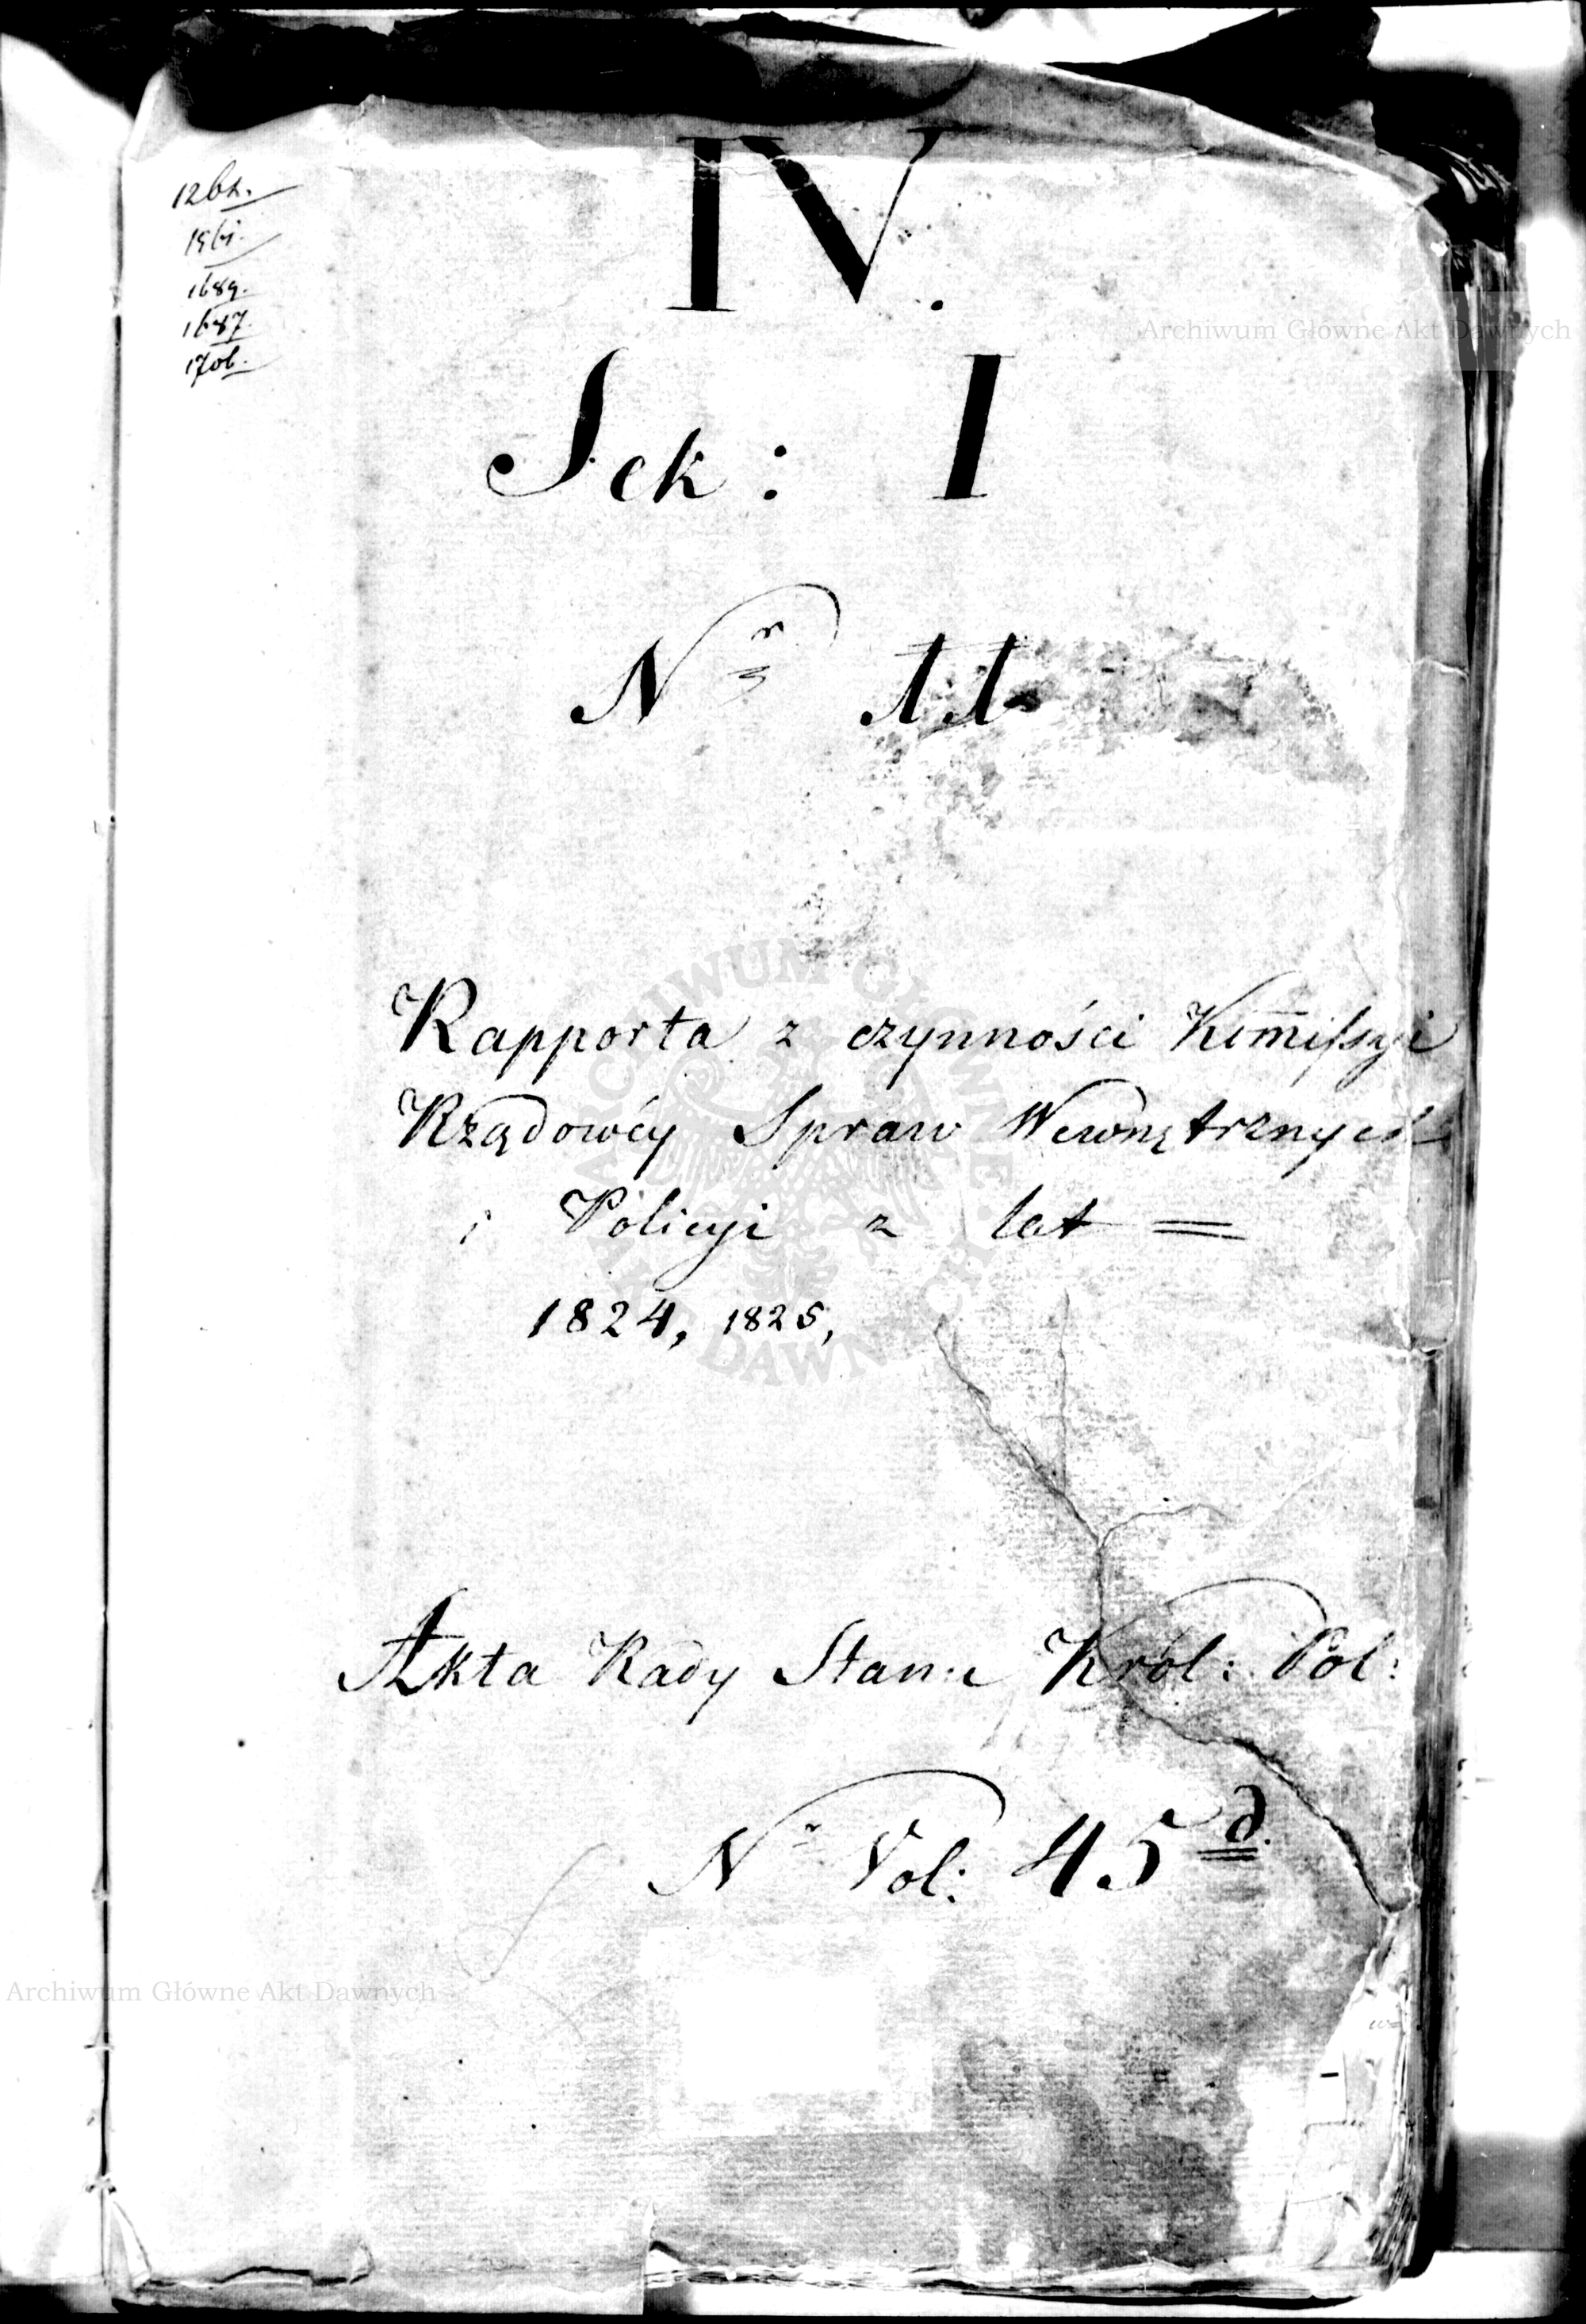 IV.
1689.
1687.
1706.
Sek: I
Nr 11
Rapporta z czynności Kom̅issyi
Rządowéy Spraw Wewnętrznych
i Policyi z lat =
1824, 1825,
Akta Rady Stanu Król: Pol:
Nr Vol: 45 d.
Archiwum Główne Akt Dawnych
ARCHIWUM GŁÓWNE AKT DAWNYCH
Archiwum Główne Akt Dawnych